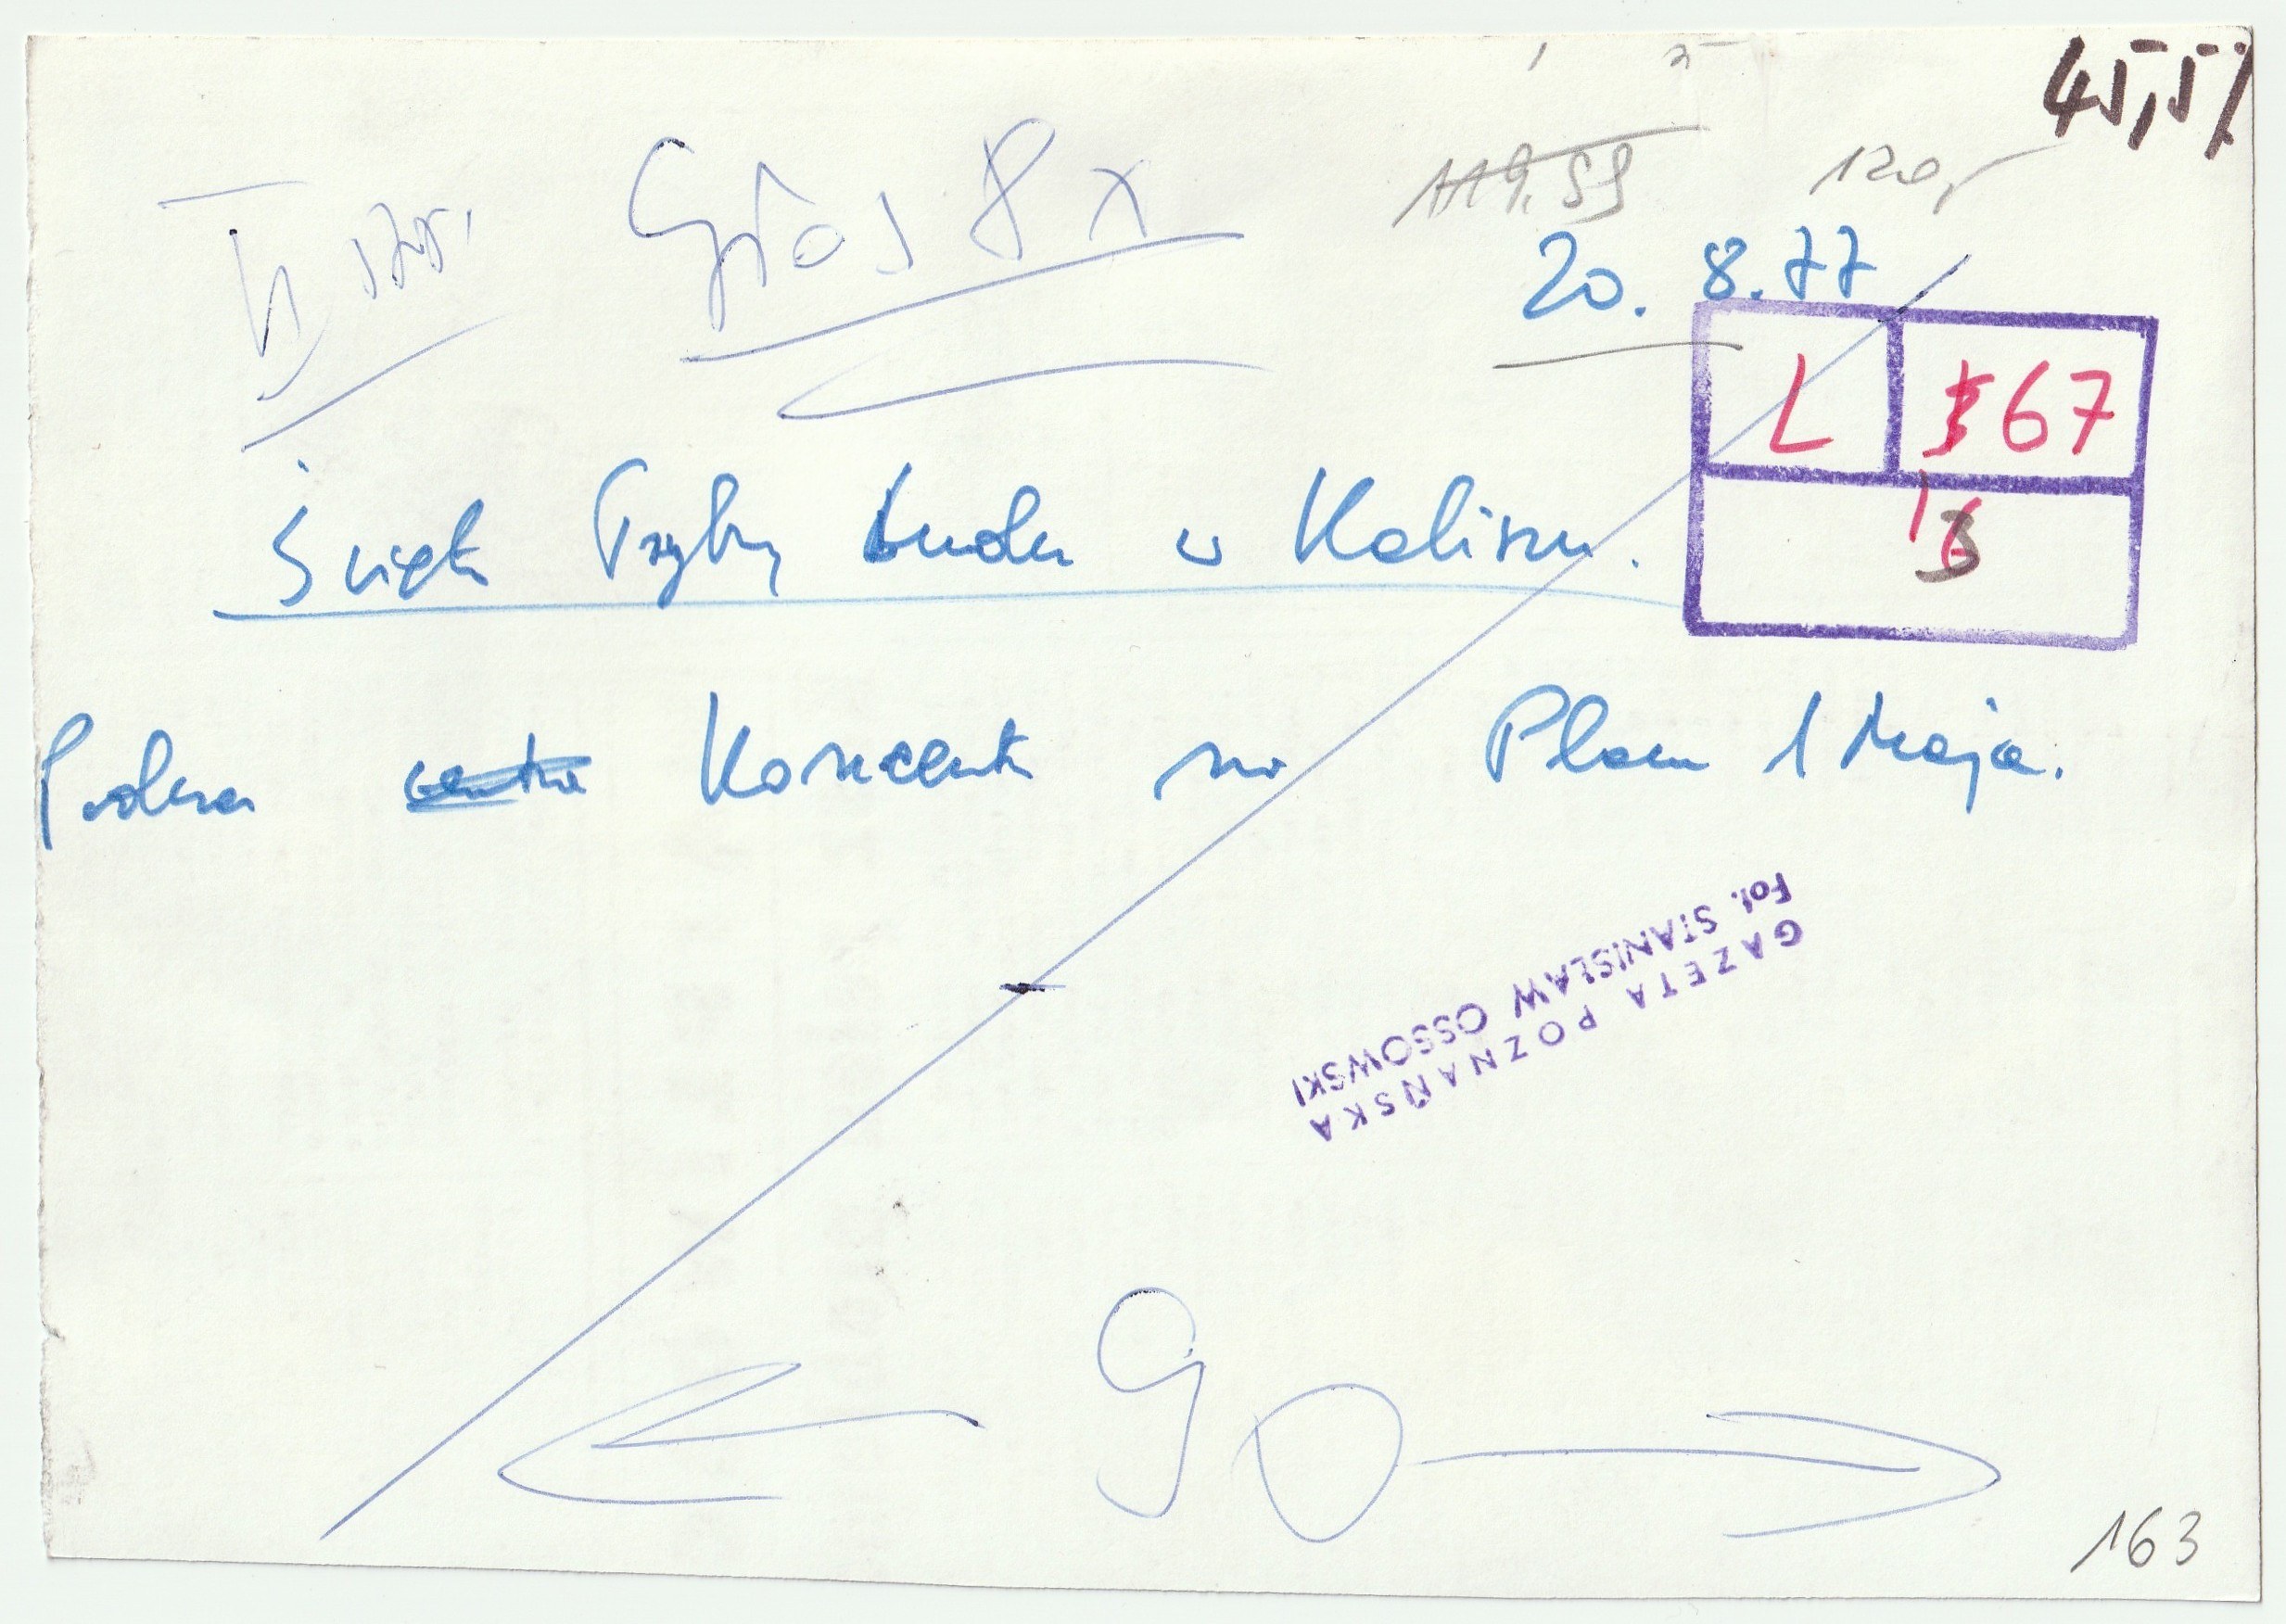 45,5
120,-
II str. Głos 8 x
20. 8.77
L 367
16
Święto Trybuny Ludu w Kaliszu.
Podczas Koncertu na Placu 1 Maja.
GAZETA POZNAŃSKA
Fot. STANISŁAW OSSOWSKI
90
163